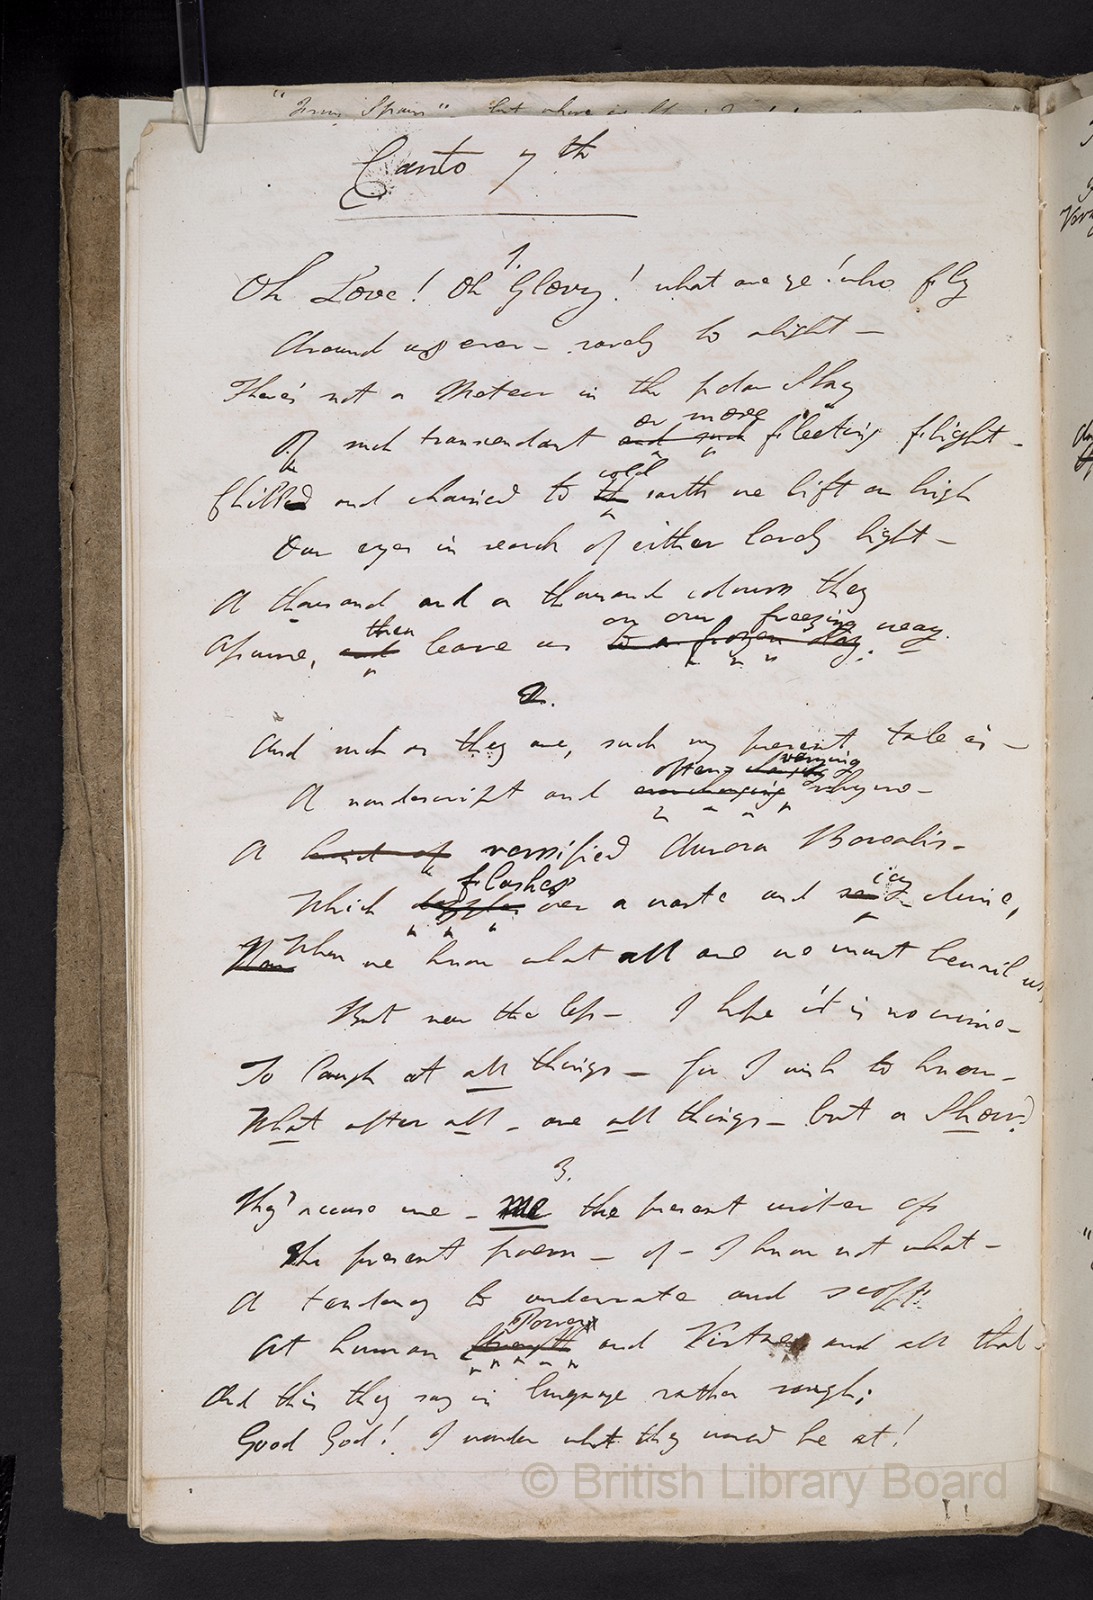 "Fierce Spain" - but where is
Canto 7th
1.
Oh Love! Oh Glory! what are ye! who fly
Around us ever - rarely to alight -
There's not a Meteor in the polar Sky
Of such transcendant and such or more fleeting flight -
Chilled and chained to th cold earth we lift on high
Our eyes in search of either lovely light -
A thousand and a thousand colours they
Assume, and then leave us to a frozen Sky. on our freezing way.
2.
And such as they are, such my present tale is -
A nondescript and ever changing often varying rhyme -
A kind of versified Aurora Borealis -
Which dazzles flashes over a waste and icy clime,
When we know what all are we must bewail us
But ne'er the less - I hope it is no crime -
To laugh at all things - for I wish to know -
What after all - are all things - but a Show?
3.
They accuse me - me the present writer of
The present poem - of - I know not what -
A tendency to underrate and scoff
At human Strength Power and Virtue and all that -
And this they say in language rather rough;
Good God! I wonder what they would be at!
© British Library Board